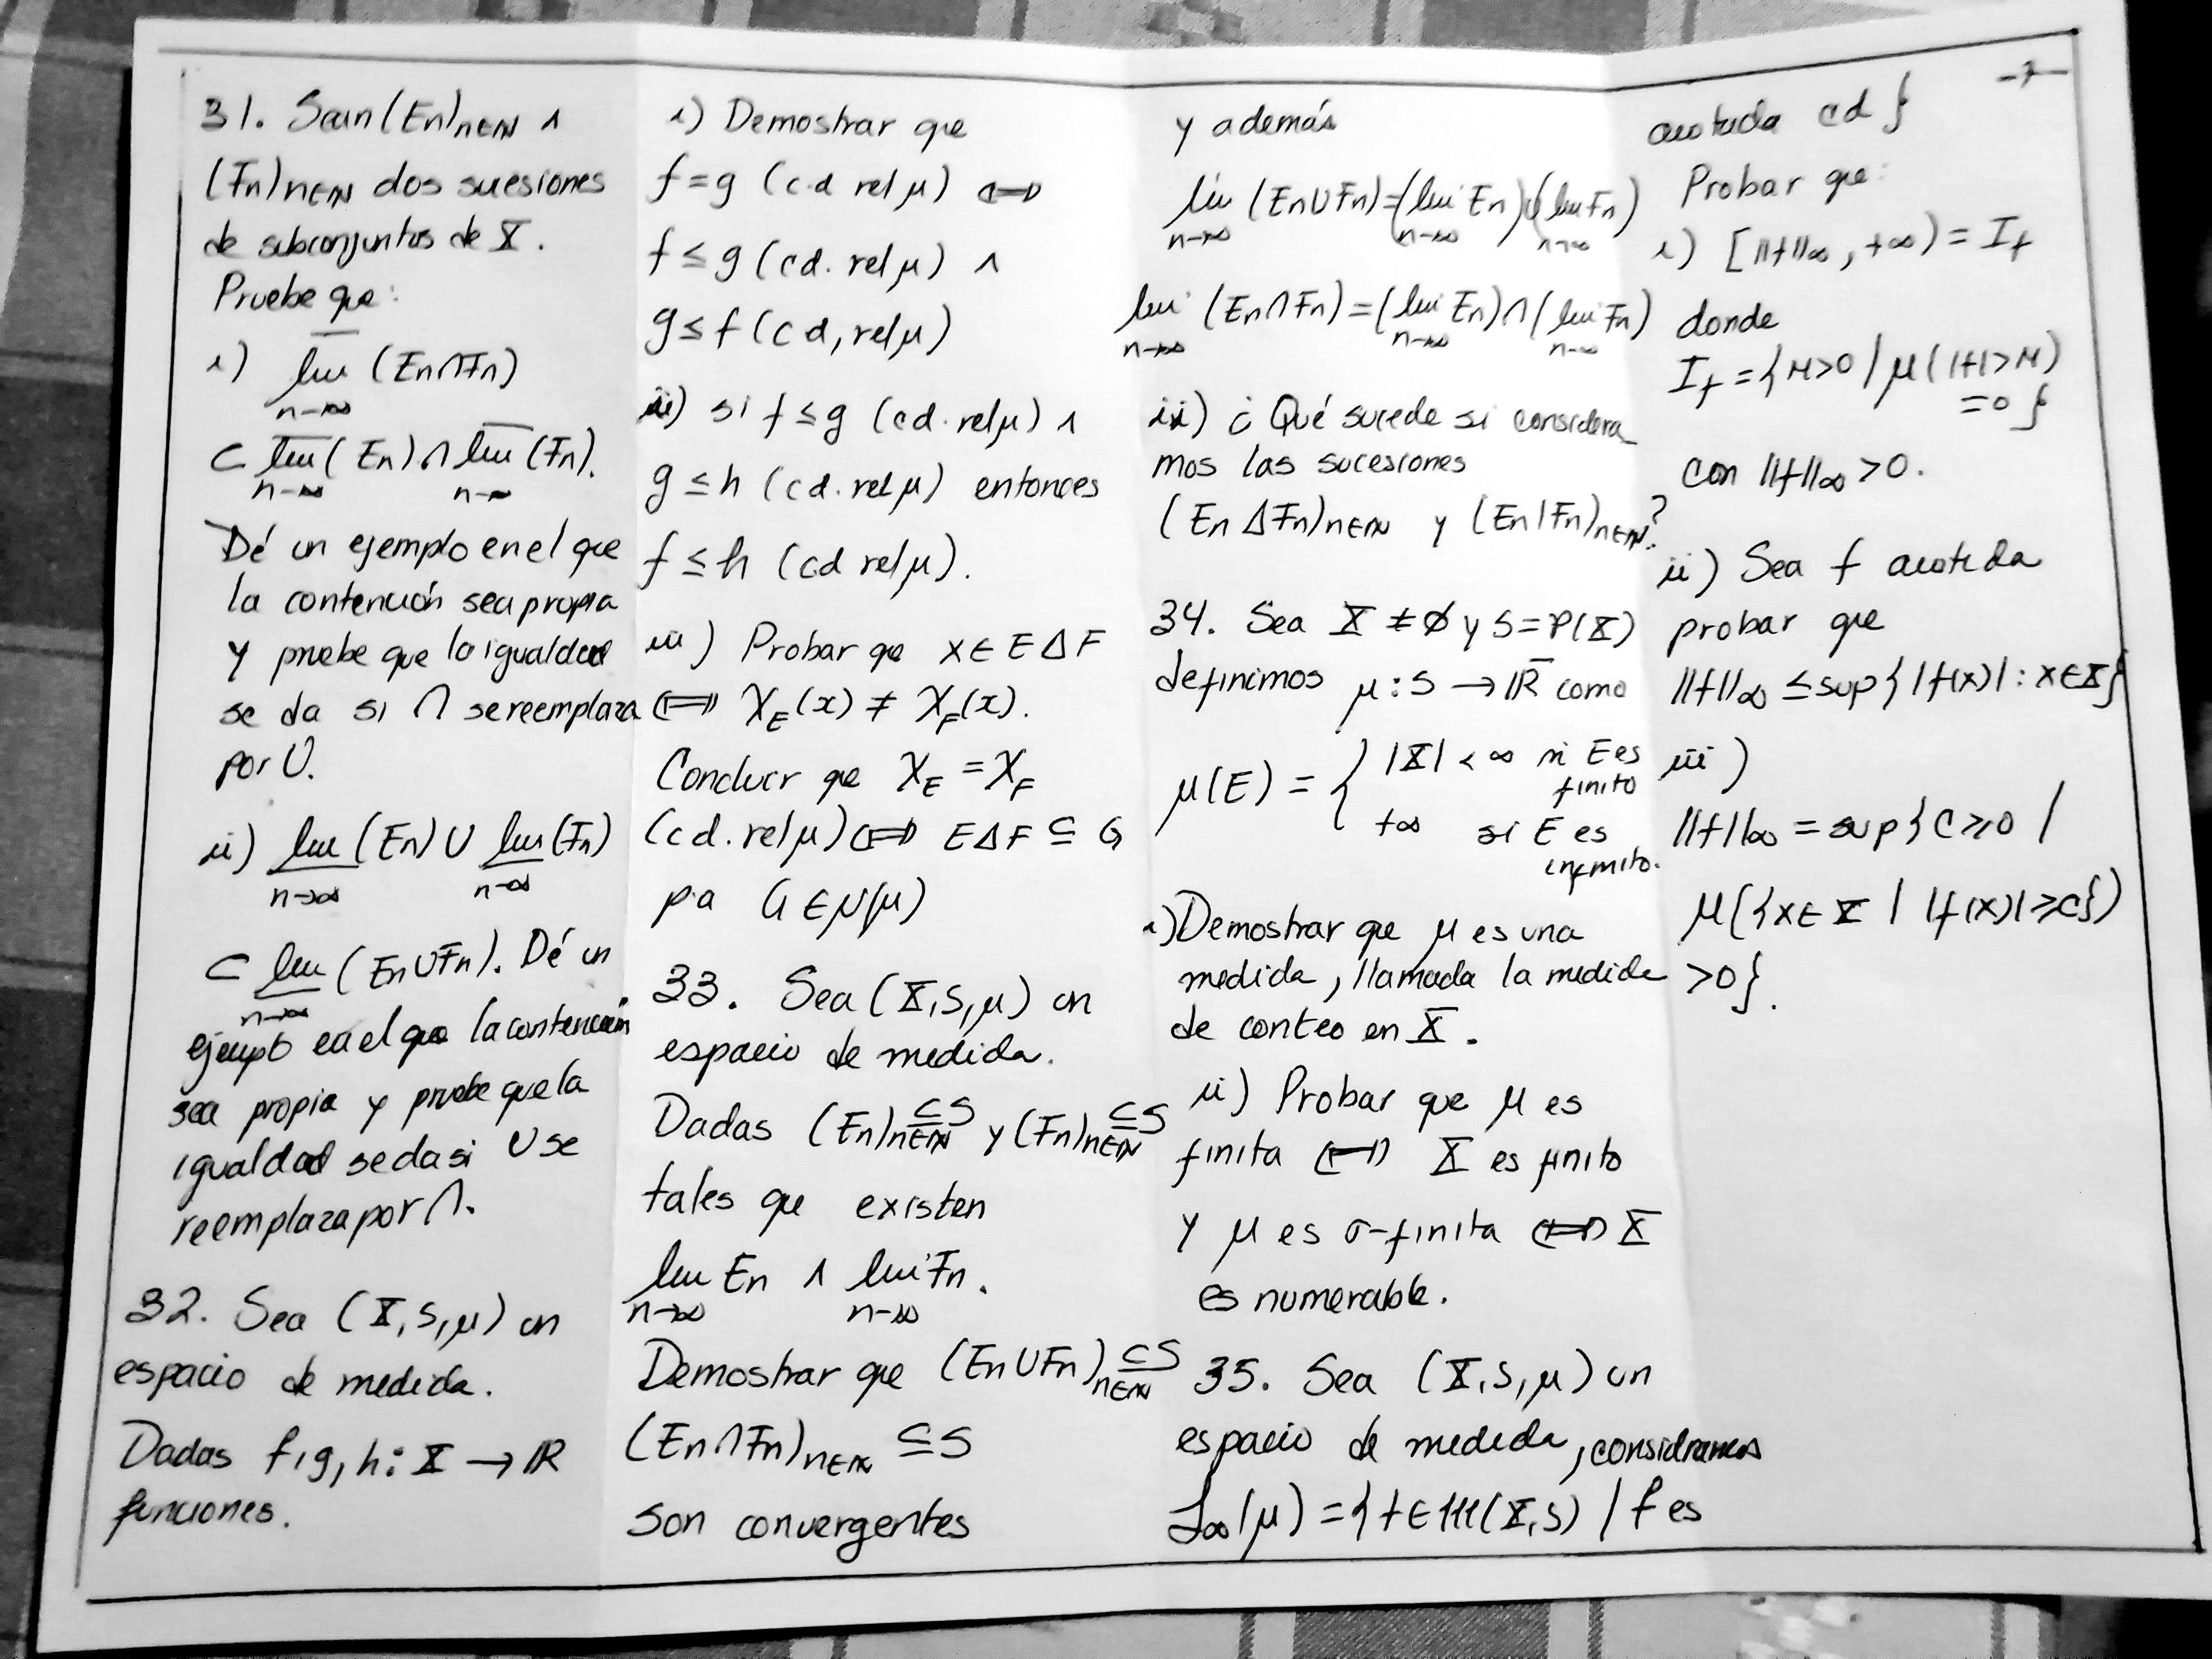 -7-
31. Sean (En)n∈ℕ ∧
(Fn)n∈ℕ dos suesiones
de subconjuntos de X.
Pruebe que:
i) lim̅ n→∞ (En∩Fn)
⊂ lim̅ n→∞ (En) ∩ lim̅ n→∞ (Fn).
Dé un ejemplo en el que
la contención sea propia
y pruebe que la igualdad
se da si ∩ se reemplaza
por U.
ii) lim̲ n→∞ (En) ∪ lim̲ n→∞ (Fn)
⊂ lim̲ n→∞ (En∪Fn). Dé un
ejempo en el que la contención
sea propia y pruebe que la
igualdad se da si U se
reemplaza por ∩.
32. Sea (X,S,μ) un
espacio de medida.
Dadas f,g,h: X → ℝ
funciones.
i) Demostrar que
f=g (c.d rel μ) ⟺
f≤g (cd. rel μ) ∧
g≤f (cd, rel μ)
ii) si f≤g (cd. rel μ) ∧
g≤h (cd. rel μ) entonces
f≤h (cd rel μ).
iii) Probar que x∈E△F
⟺ χ_E(x) ≠ χ_F(x).
Concluir que χ_E = χ_F
(cd. rel μ) ⟺ E△F ⊆ G
p.a G∈N(μ)
33. Sea (X,S,μ) un
espacio de medida.
Dadas (En)n∈ℕ ⊆S y (Fn)n∈ℕ ⊆S
tales que existen
lim n→∞ En ∧ lim n→∞ Fn.
Demostrar que (En∪Fn)n∈ℕ ⊆S
(En∩Fn)n∈ℕ ⊆S
son convergentes
y además
lim n→∞ (En∪Fn)=(lim n→∞ En)∪(lim n→∞ Fn)
lim n→∞ (En∩Fn)=(lim n→∞ En)∩(lim n→∞ Fn)
ii) ¿Qué sucede si considera
mos las sucesiones
(En △Fn)n∈ℕ y (En|Fn)n∈ℕ?
34. Sea X ≠ ∅ y S=P(X)
definimos μ:S → ℝ̅ como
μ(E) = { |X| < ∞ si E es finito
+∞ si E es infinito.
i) Demostrar que μ es una
medida, llamada la medida
de conteo en X.
ii) Probar que μ es
finita ⟺ X es finito
y μ es σ-finita ⟺ X
es numerable.
35. Sea (X,S,μ) un
espacio de medida, consideramos
L∞(μ) = {f∈M(X,S) / f es
acotada cd}
Probar que:
i) [‖f‖∞, +∞) = I_f
donde
I_f = {M>0 / μ(|f|>M)
=0}
con ‖f‖∞ >0.
ii) Sea f acotada
probar que
‖f‖∞ ≤ sup{|f(x)| : x∈X}
iii)
‖f‖∞ = sup{C≥0 /
μ({x∈X | |f(x)|≥C})
>0}.